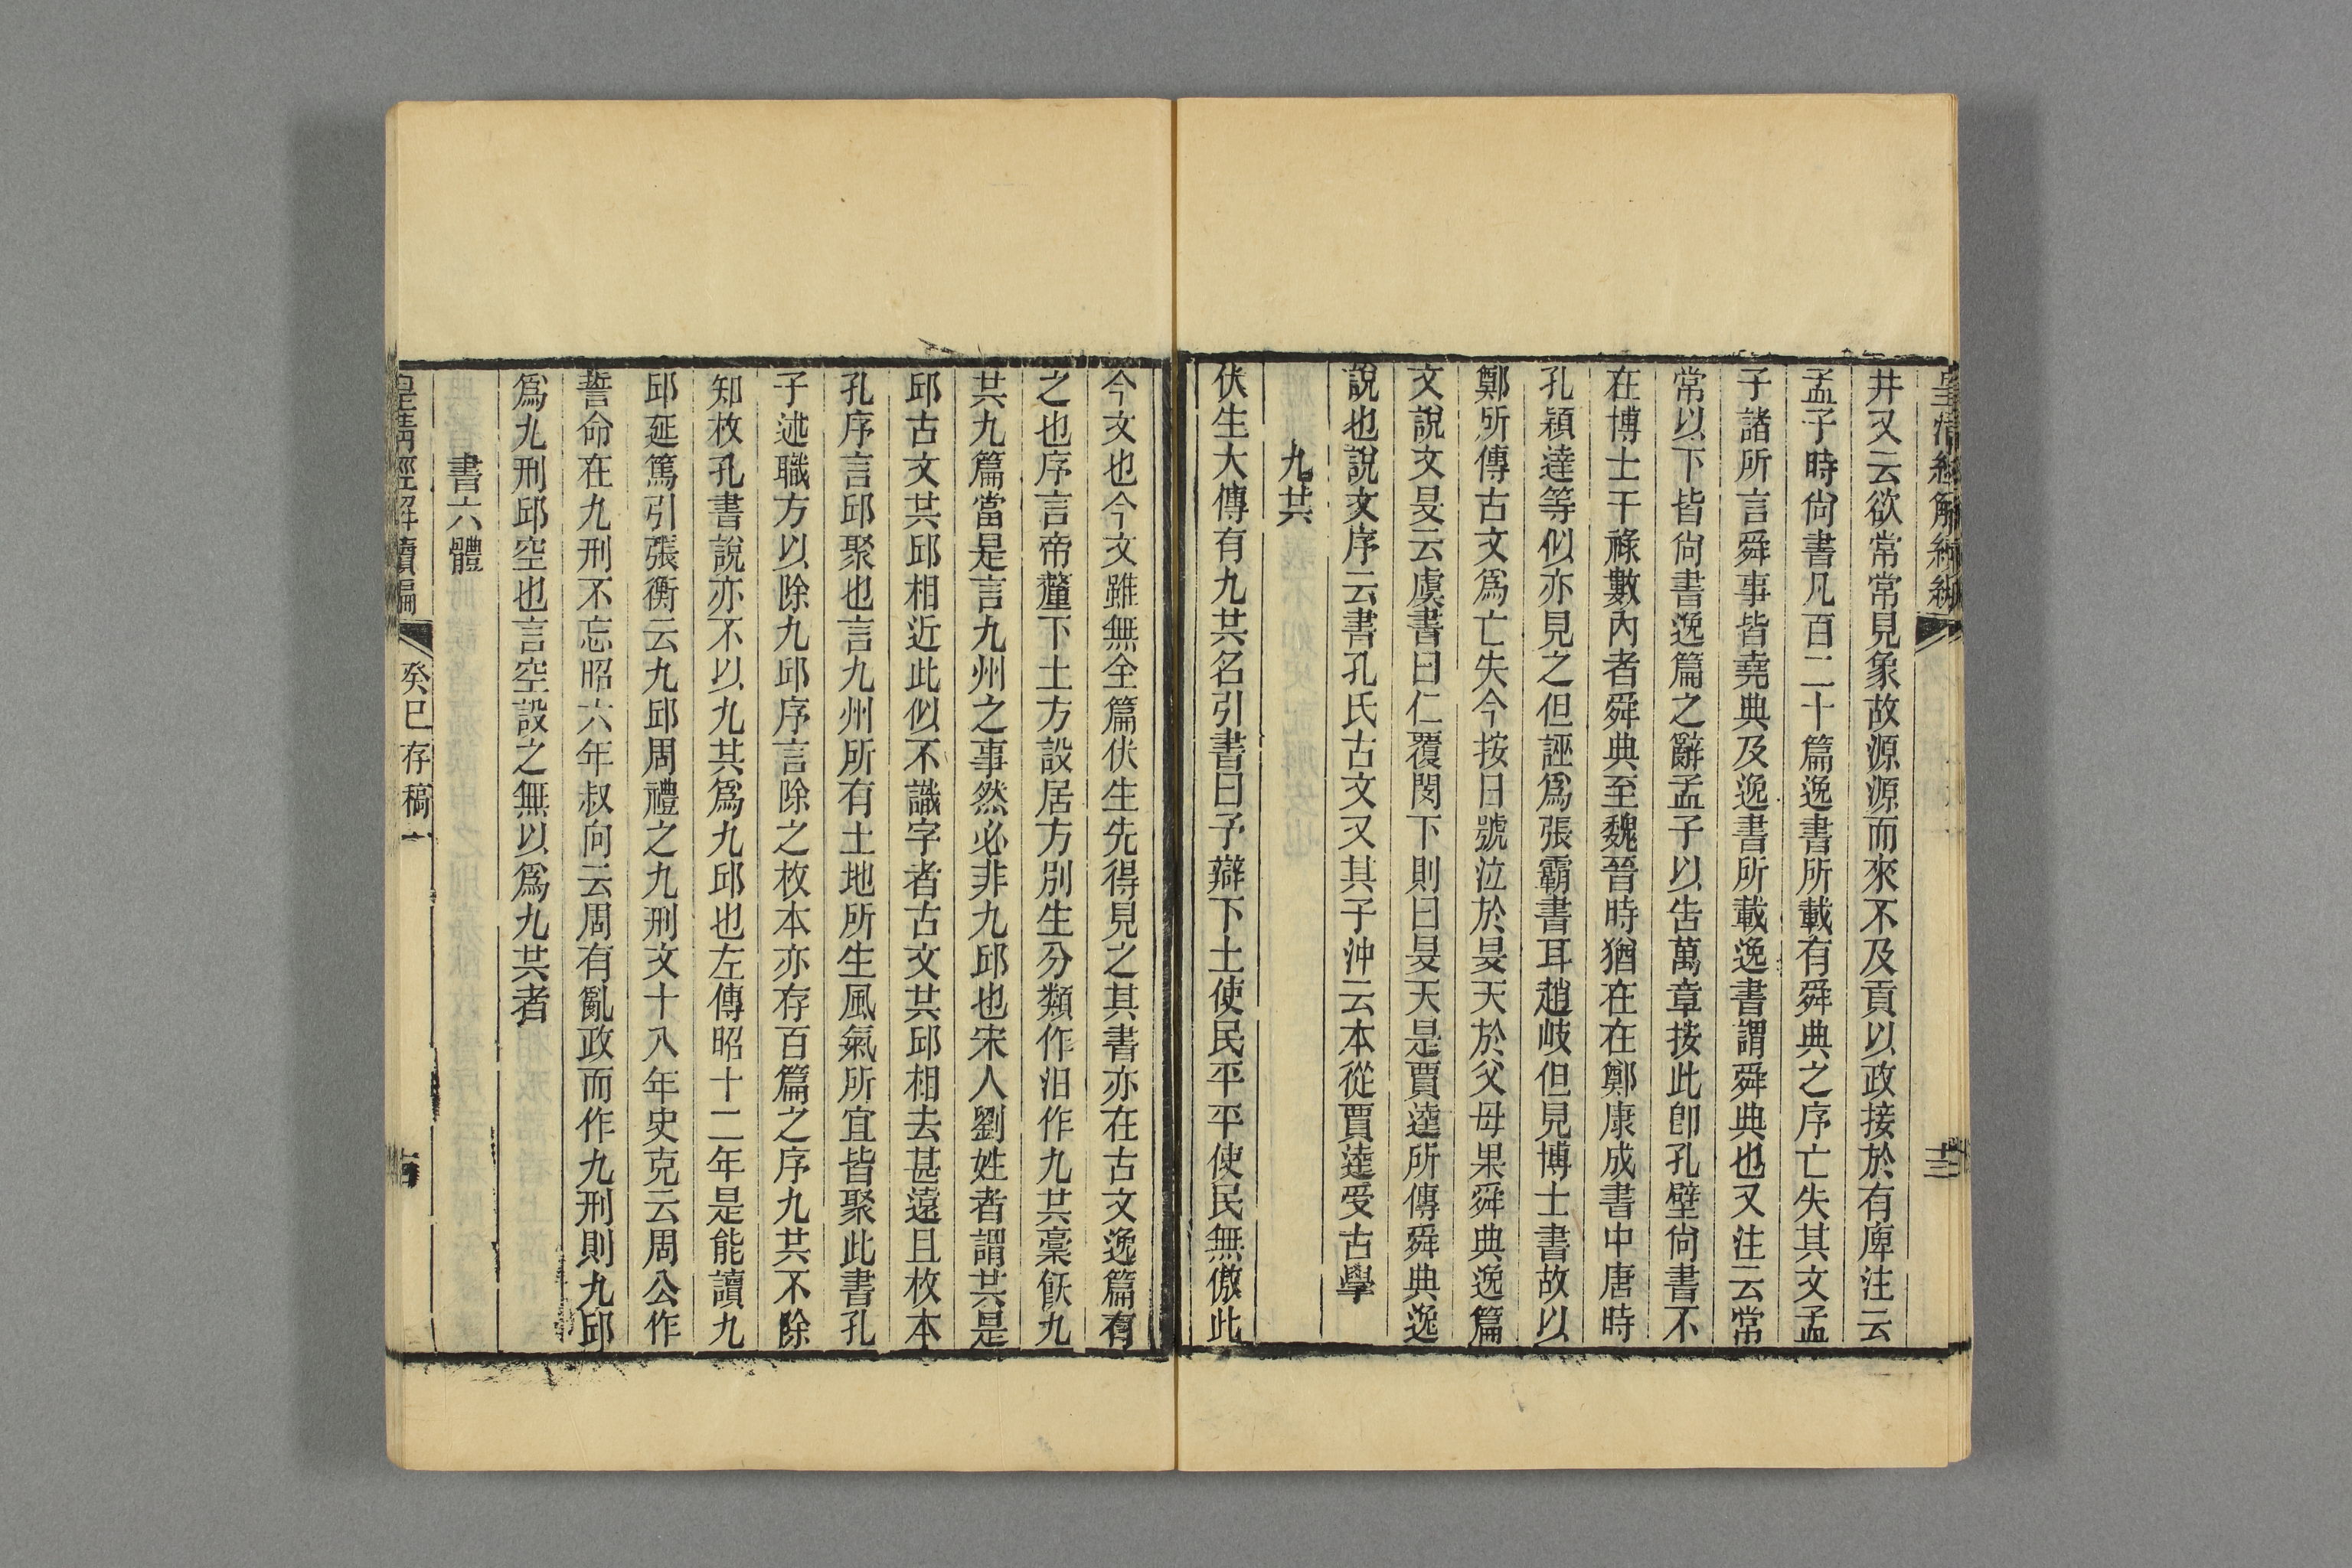 皇清經解續編
十三
井又云欲常常見象故源源而來不及貢以政接於有庳注云
孟子時尙書凡百二十篇逸書所載有舜典之序亡失其文孟
子諸所言舜事皆堯典及逸書所載逸書謂舜典也又注云常
常以下皆尙書逸篇之辭孟子以告萬章按此卽孔壁尙書不
在博士干祿數內者舜典至魏晉時猶在在鄭康成書中唐時
孔穎達等似亦見之但誣爲張霸書耳趙岐但見博士書故以
鄭所傳古文爲亡失今按日號泣於旻天於父母果舜典逸篇
文說文旻云虞書曰仁覆閔下則曰旻天是賈逵所傳舜典逸
說也說文序云書孔氏古文又其子沖云本從賈逵受古學
九共
伏生大傳有九共名引書曰予辯下土使民平平使民無傲此
今文也今文雖無全篇伏生先得見之其書亦在古文逸篇有
之也序言帝釐下土方設居方別生分類作汩作九共槀飫九
共九篇當是言九州之事然必非九邱也宋人劉姓者謂共是
邱古文共邱相近此似不識字者古文共邱相去甚遠且枚本
孔序言邱聚也言九州所有土地所生風氣所宜皆聚此書孔
子述職方以除九邱序言除之枚本亦存百篇之序九共不除
知枚孔書說亦不以九共爲九邱也左傳昭十二年是能讀九
邱延篤引張衡云九邱周禮之九刑文十八年史克云周公作
誓命在九刑不忘昭六年叔向云周有亂政而作九刑則九邱
爲九刑邱空也言空設之無以爲九共者
書六體
皇清經解續編
癸巳存稿一